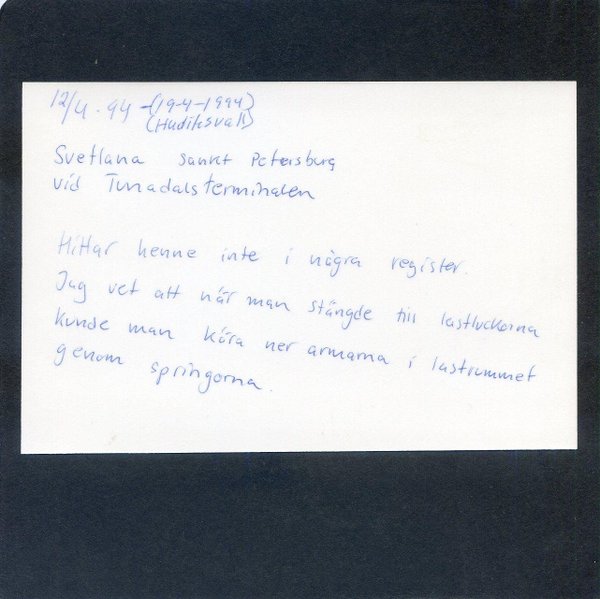 12/4-94 - (19-4-1994)
(Hudiksvall)
Svetlana Sankt Petersburg
vid Tunadalsterminalen
Hittar henne inte i några register.
Jag vet att när man stängde till lastluckorna
kunde man köra ner armarna i lastrummet
genom springorna.